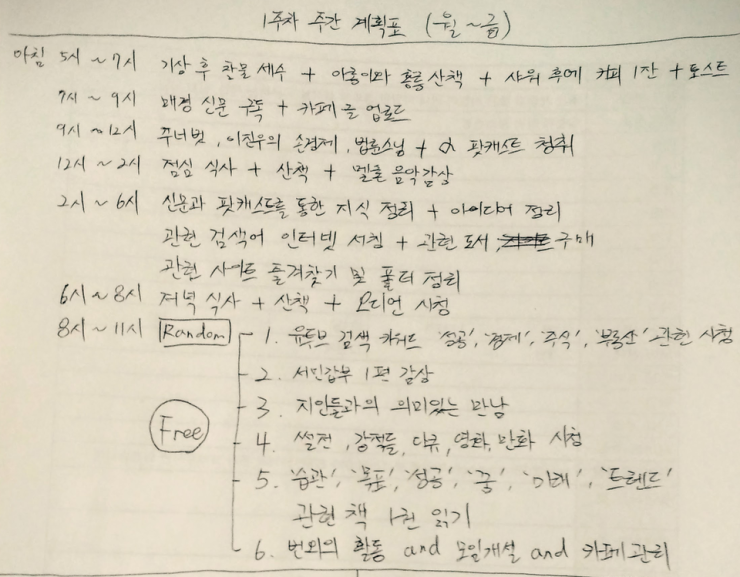 1주차 주간 계획표 (월~금)
아침 5시 ~ 7시 기상 후 찬물 세수 + 아롱이와 홍릉 산책 + 샤워 후에 커피 1잔 + 토스트
7시 ~ 9시 매경 신문 구독 + 카페 글 업로드
9시 ~ 12시 푸너벗, 이진우의 손경제, 법륜스님 + α 팟캐스트 청취
12시 ~ 2시 점심 식사 + 산책 + 멜론 음악감상
2시 ~ 6시 신문과 팟캐스트를 통한 지식 정리 + 아이디어 정리
관련 검색어 인터넷 서칭 + 관련 도서 구매
관련 사이트 즐겨찾기 및 폴더 정리
6시 ~ 8시 저녁 식사 + 산책 + 오디언 시청
8시 ~ 11시 Random 1. 유투브 검색 키워드 '성공', '경제', '주식', '부동산' 관련 시청
2. 서민갑부 1편 감상
3. 지인들과의 의미있는 만남
Free
4. 썰전, 강적들, 다큐, 영화, 만화 시청
5. '습관', '목표', '성공', '꿈', '미래', '트렌드'
관련 책 1권 읽기
6. 번외의 활동 and 모임개설 and 카페관리